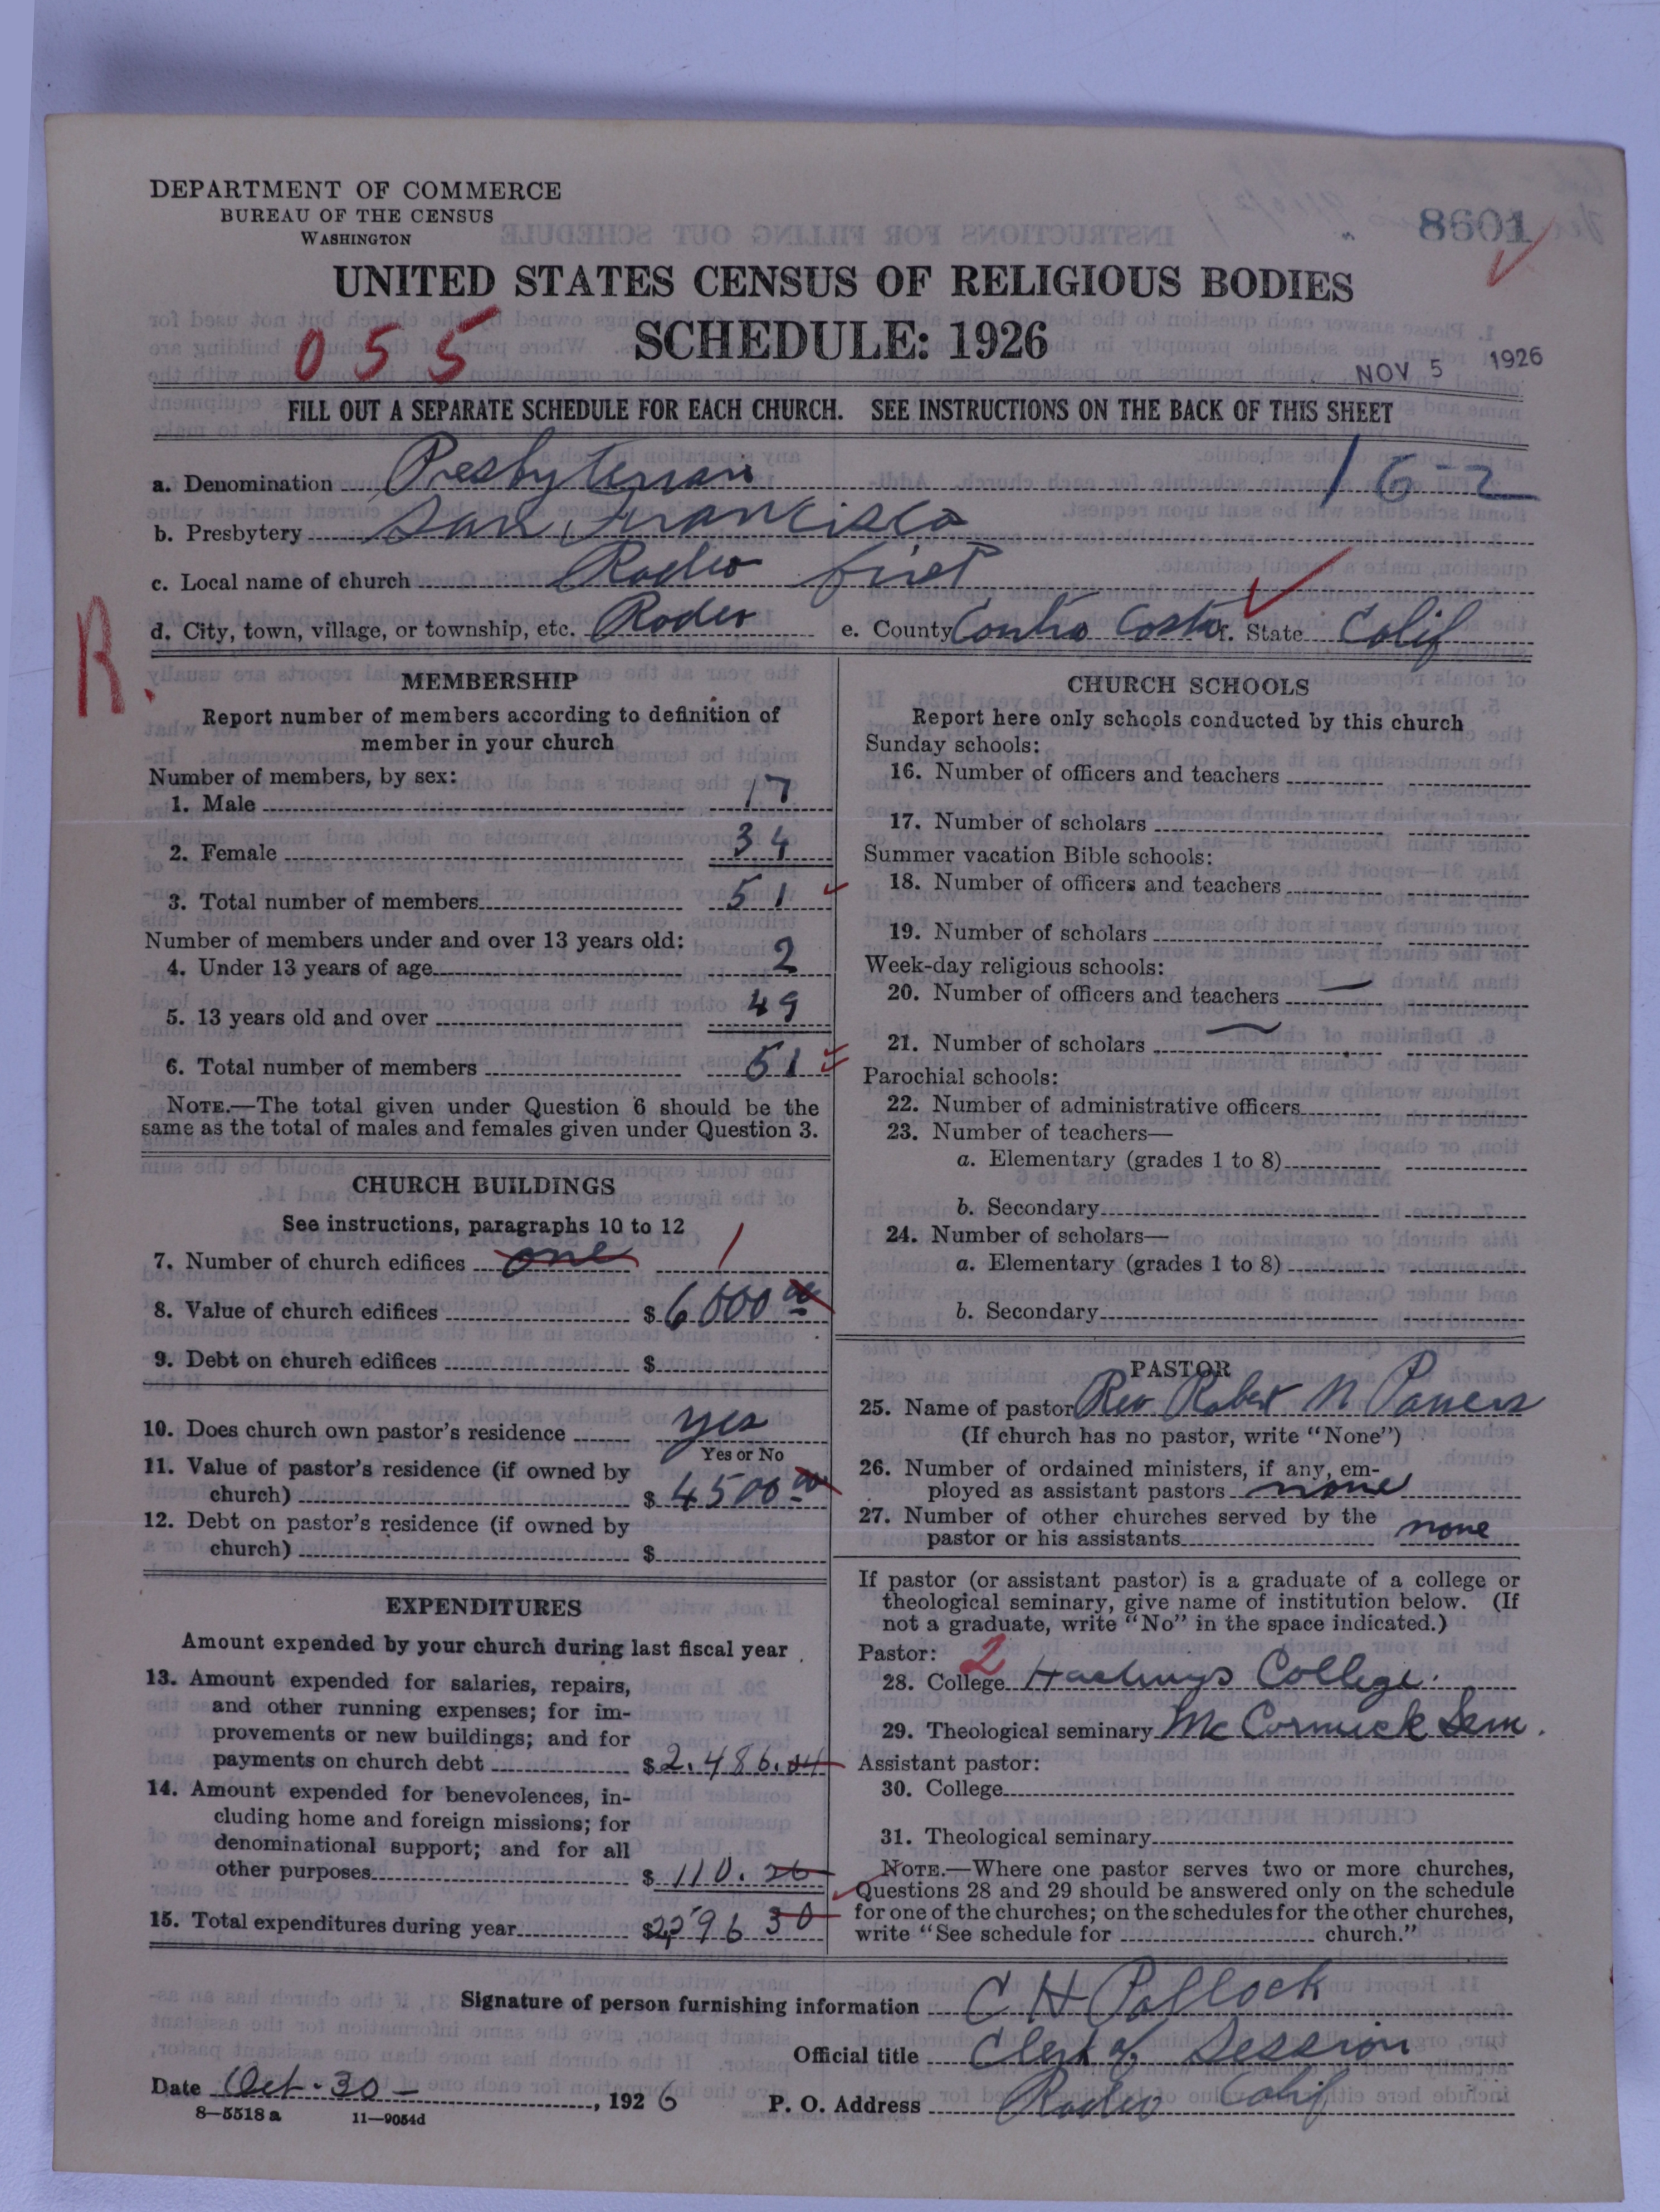 DEPARTMENT OF COMMERCE
BUREAU OF THE CENSUS
WASHINGTON
8601
UNITED STATES CENSUS OF RELIGIOUS BODIES
SCHEDULE: 1926
055
NOV 5 1926
FILL OUT A SEPARATE SCHEDULE FOR EACH CHURCH. SEE INSTRUCTIONS ON THE BACK OF THIS SHEET
a. Denomination Presbyterian 16-2
b. Presbytery San Francisco
c. Local name of church Rodeo first
d. City, town, village, or township, etc. Rodeo e. County Contra Costa f. State Calif
R.
MEMBERSHIP
Report number of members according to definition of
member in your church
Number of members, by sex:
1. Male 17
2. Female 34
3. Total number of members 51
Number of members under and over 13 years old:
4. Under 13 years of age 2
5. 13 years old and over 49
6. Total number of members 51
NOTE.—The total given under Question 6 should be the
same as the total of males and females given under Question 3.
CHURCH BUILDINGS
See instructions, paragraphs 10 to 12
7. Number of church edifices one 1
8. Value of church edifices $ 6000 00
9. Debt on church edifices $
10. Does church own pastor's residence yes
Yes or No
11. Value of pastor's residence (if owned by
church) $ 4500 00
12. Debt on pastor's residence (if owned by
church) $
EXPENDITURES
Amount expended by your church during last fiscal year
13. Amount expended for salaries, repairs,
and other running expenses; for im-
provements or new buildings; and for
payments on church debt $ 2.486.04
14. Amount expended for benevolences, in-
cluding home and foreign missions; for
denominational support; and for all
other purposes $ 110.26
15. Total expenditures during year $ 2,596 30
CHURCH SCHOOLS
Report here only schools conducted by this church
Sunday schools:
16. Number of officers and teachers
17. Number of scholars
Summer vacation Bible schools:
18. Number of officers and teachers
19. Number of scholars
Week-day religious schools:
20. Number of officers and teachers —
21. Number of scholars —
Parochial schools:
22. Number of administrative officers
23. Number of teachers—
a. Elementary (grades 1 to 8)
b. Secondary
24. Number of scholars—
a. Elementary (grades 1 to 8)
b. Secondary
PASTOR
25. Name of pastor Rev Robert N Powers
(If church has no pastor, write "None")
26. Number of ordained ministers, if any, em-
ployed as assistant pastors none
27. Number of other churches served by the
pastor or his assistants none
If pastor (or assistant pastor) is a graduate of a college or
theological seminary, give name of institution below. (If
not a graduate, write "No" in the space indicated.)
Pastor: 2
28. College Hastings College.
29. Theological seminary McCormick Sem.
Assistant pastor:
30. College
31. Theological seminary
NOTE.—Where one pastor serves two or more churches,
Questions 28 and 29 should be answered only on the schedule
for one of the churches; on the schedules for the other churches,
write "See schedule for church."
Signature of person furnishing information C H Pollock
Official title Clerk of Session
Date Oct. 30 —, 1926 P. O. Address Rodeo Calif
8—5518 a 11—9054d